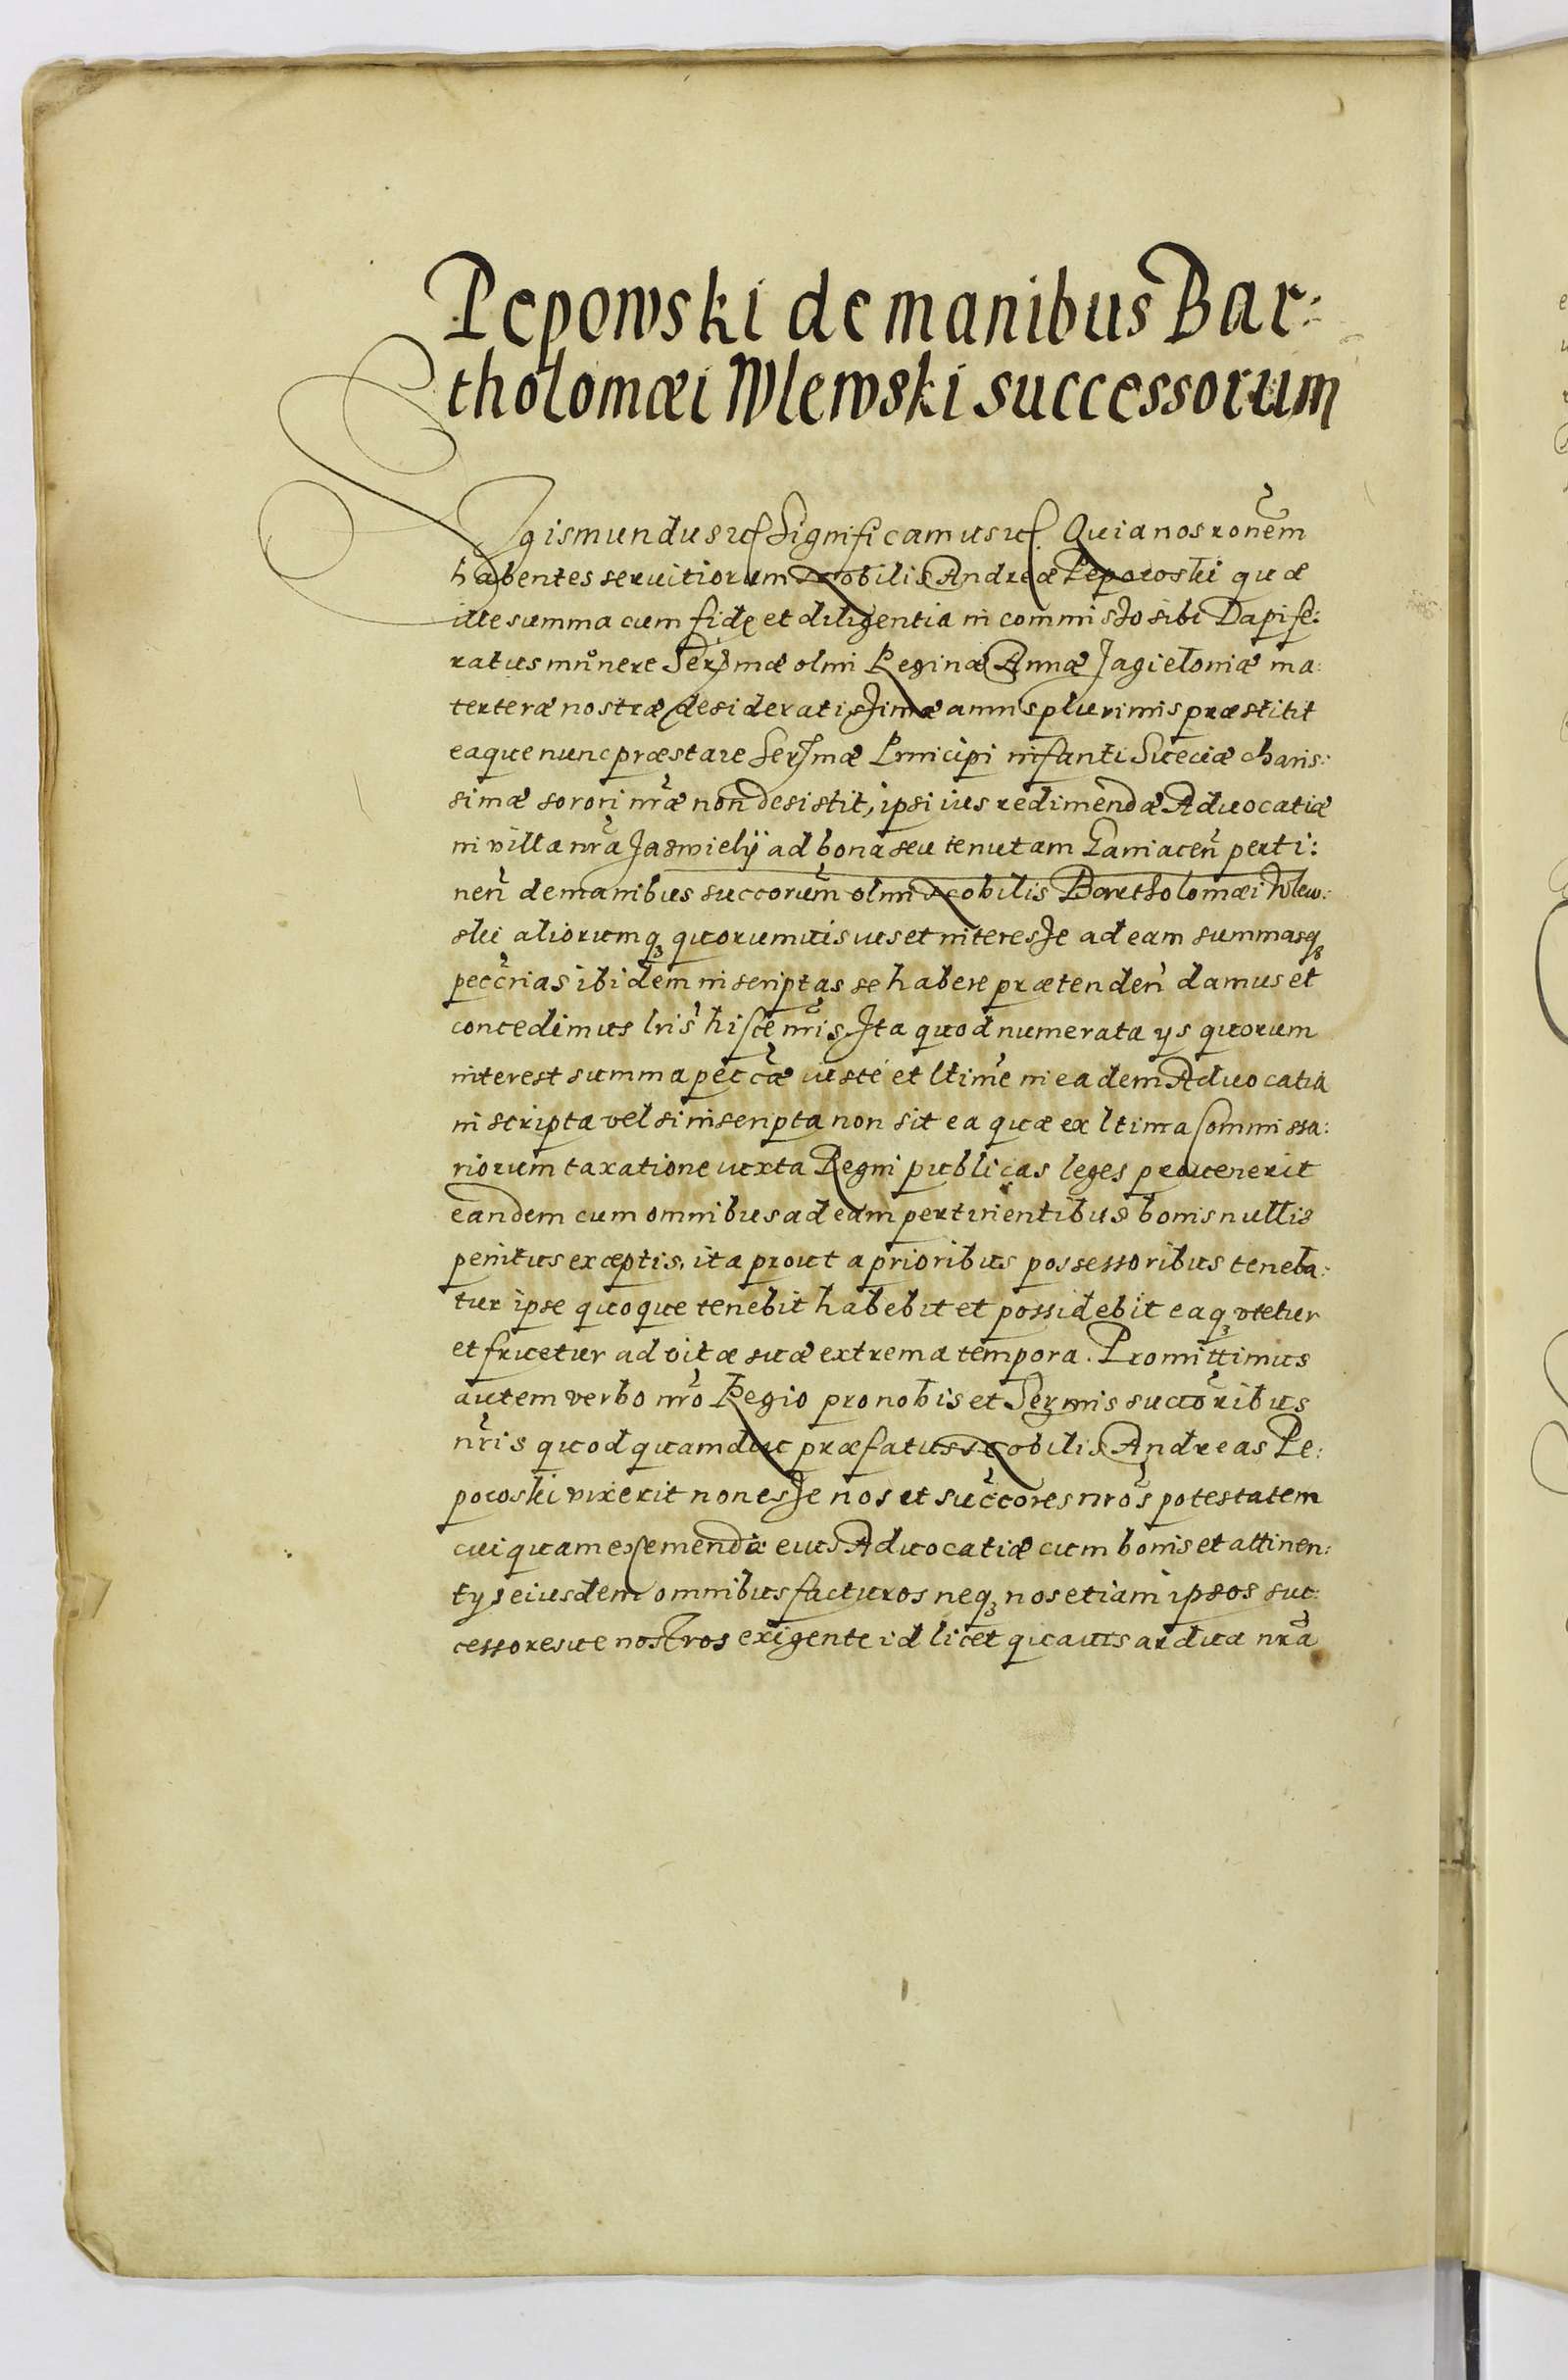 Pepowski de manibus Bar:
tholomæi Wlewski successorum
Sigismundus etc Significamus etc. Quia nos ronem
habentes seruitiorum Nobilis Andreæ Pepowski quæ
ille summa cum fide et diligentia in commisso sibi Dapife:
ratus munere Sersmæ olmi Reginæ Annæ Jagieloniæ ma:
terteræ nostræ desideratissimæ annis plurimis præstitit
eaque nunc præstare Sersmæ Principi infanti Sueciæ charis:
simæ sorori nræ non desistit, ipsi ius redimendæ Aduocatiæ
in villa nra Jaswiely ad bona seu tenutam Laniacen perti:
nen de manibus succorum olmi Nobilis Bartholomæi Wlew:
ski aliorumq quorumuis ius et interesse ad eam summasq
peccrias ibidem inscriptas se habere prætenden damus et
concedimus lris hisce nris. Ita quod numerata ys quorum
interest summa peccæ iuste et ltime in eadem Aduocatia
inscripta vel si inscripta non sit ea quæ ex ltima Commissa:
riorum taxatione iuxta Regni publicas leges prouenerit
eandem cum omnibus ad eam pertinentibus bonis nullis
penitus exceptis, ita prout a prioribus possessoribus teneba:
tur ipse quoque tenebit habebit et possidebit eaq vtetur
et fruetur ad vitæ suæ extrema tempora. Promittimus
autem verbo nro Regio pro nobis et Sermis succoribus
nris quod quamdiu præfatus Nobilis Andreas Pe:
powski vixerit non esse nos et succores nros potestatem
cuiquam eximendi eius Aduocatiæ cum bonis et attinen:
tys eiusdem omnibus facturos neq nos etiam ipsos suc:
cessoresue nostros exigente id licet quauis ardua nra